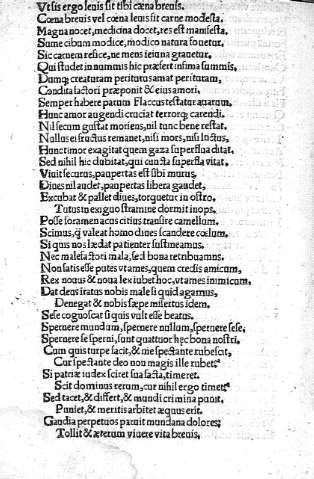 Ut sis ergo leuis sit tibi cæna breuis.
Cœna breuis vel cœna leuis sit carne modesta.
Magna nocet, medicina docet, res est manifesta.
Sume cibum modice, modico natura fouetur.
Sic carnem refice, ne mens ieiuna grauetur.
Qui studet in nummis hic præfert infima summis,
Dumq; creaturam periturus amat perituram,
Condita factori præponit & eius amori.
Semper habere parum Flaccus testatur auarum.
Hunc amor augendi cruciat terrorq; carendi.
Nil secum gustat moriens, nil tunc bene restat.
Nullus ei fructus remanet, nisi mors, nisi luctus,
Hunc timor exagitat quem gaza superflua ditat.
Sed nihil hic dubitat, qui cuncta superflua vitat.
Viuit securus, paupertas est sibi murus.
Diues nil audet, paupertas libera gaudet,
Excubat & pallet diues, torquetur in ostro.
Tutus in exiguo stramine dormit inops.
Posse foramen acus citius transire camellum.
Scimus, q̃ valeat homo diues scandere cœlum.
Si quis nos lædat patienter sustineamus.
Nec malefactori mala, sed bona retribuamus.
Non satis esse putes vt ames, quem credis amicum,
Rex nouus & noua lex iubet hoc, vt ames inimicum.
Dat deus iratus nobis male si quid agamus,
Denegat & nobis sæpe misertus idem.
Sese cognoscat si quis vult esse beatus.
Spernere mundum, spernere nullum, spernere sese,
Spernere se sperni, sunt quattuor hęc bona nostri.
Cum quis turpe facit, & me spectante rubescit,
Cur spectante deo non magis ille rubet?
Si patriæ iudex sciret sua facta, timeret.
Scit dominus rerum, cur nihil ergo timet?
Sed tacet, & differt, & mundi crimina punit.
Puniet, & meritis arbiter æquus erit.
Gaudia perpetuos pariunt mundana dolores;
Tollit & æternum viuere vita breuis,